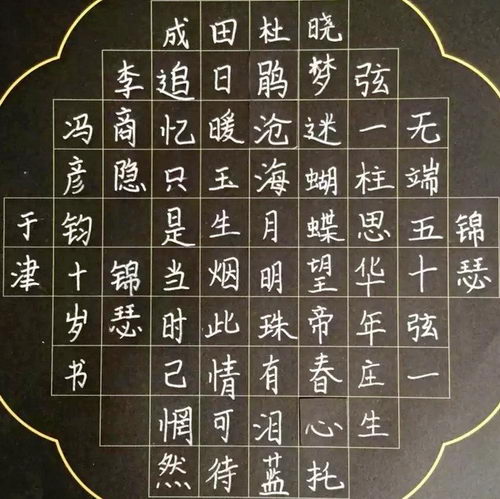 锦瑟
无端五十弦一
弦一柱思华年庄生
晓梦迷蝴蝶望帝春心托
杜鹃沧海月明珠有泪蓝
田日暖玉生烟此情可待
成追忆只是当时已惘然
李商隐 锦瑟
冯彦钧十岁书
于津